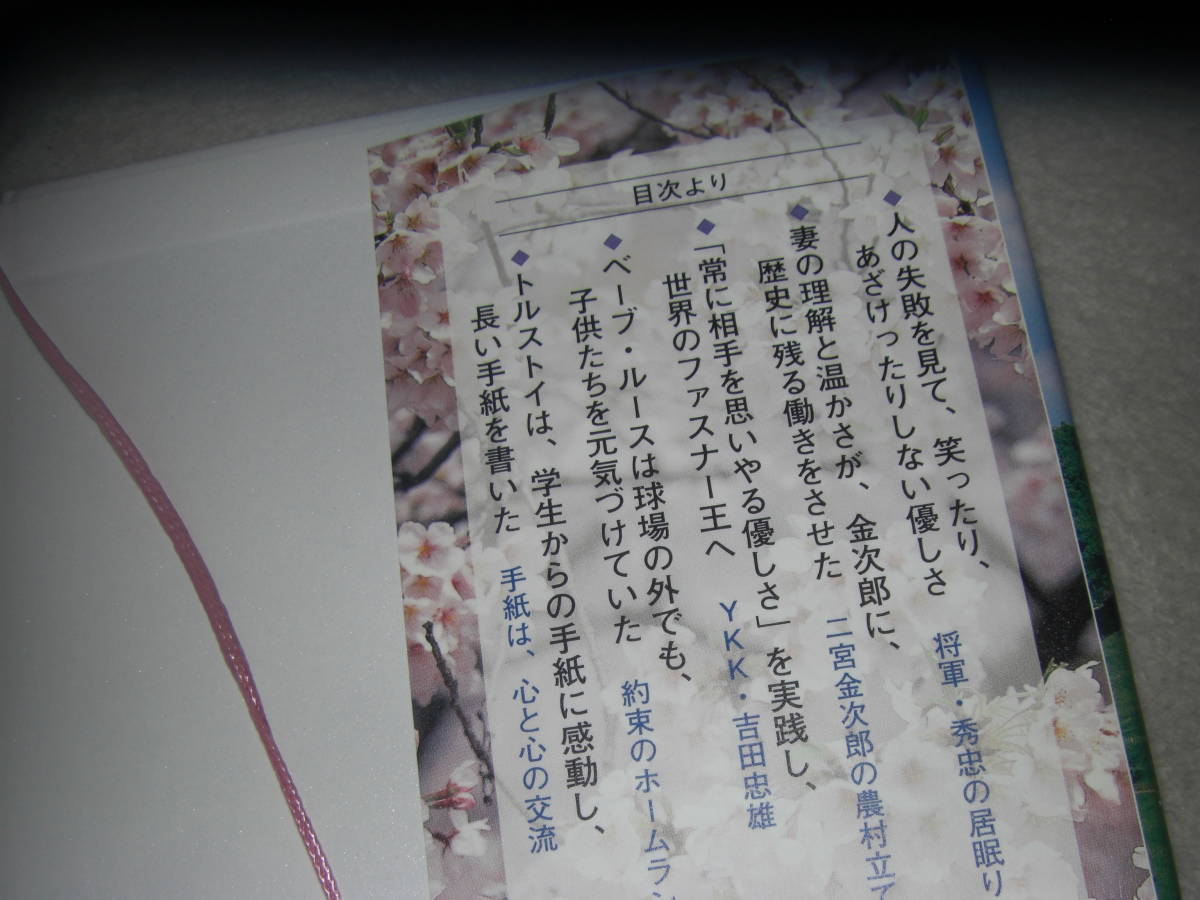 目次より
◆人の失敗を見て、笑ったり、
あざけったりしない優しさ 将軍・秀忠の居眠り
◆妻の理解と温かさが、金次郎に、
歴史に残る働きをさせた 二宮金次郎の農村立て
◆「常に相手を思いやる優しさ」を実践し、
世界のファスナー王へ YKK・吉田忠雄
◆ベーブ・ルースは球場の外でも、
子供たちを元気づけていた 約束のホームラン
◆トルストイは、学生からの手紙に感動し、
長い手紙を書いた 手紙は、心と心の交流